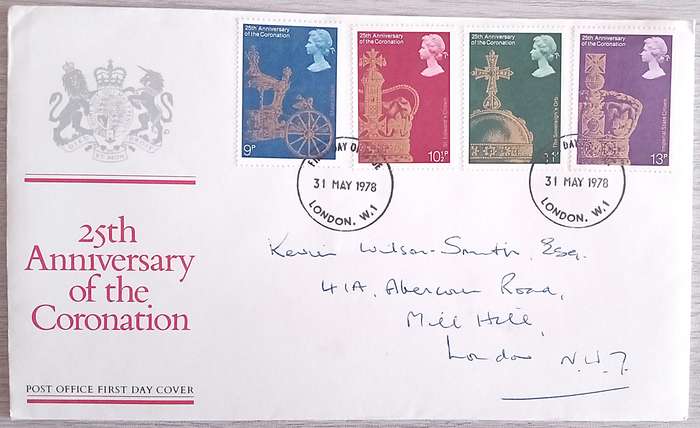 25th Anniversary
of the Coronation
9P
25th Anniversary
of the Coronation
St. Edward's Crown
10½P
25th Anniversary
of the Coronation
The Sovereign's Orb
11P
25th Anniversary
of the Coronation
Imperial State Crown
13P
FIRST DAY OF ISSUE
31 MAY 1978
LONDON. W.1
DAY
31 MAY 1978
LONDON. W.1
25th
Anniversary
of the
Coronation
POST OFFICE FIRST DAY COVER
Kevin Wilson-Smith, Esq.
41A, Abercorn Road,
Mill Hill,
London N.W.7.